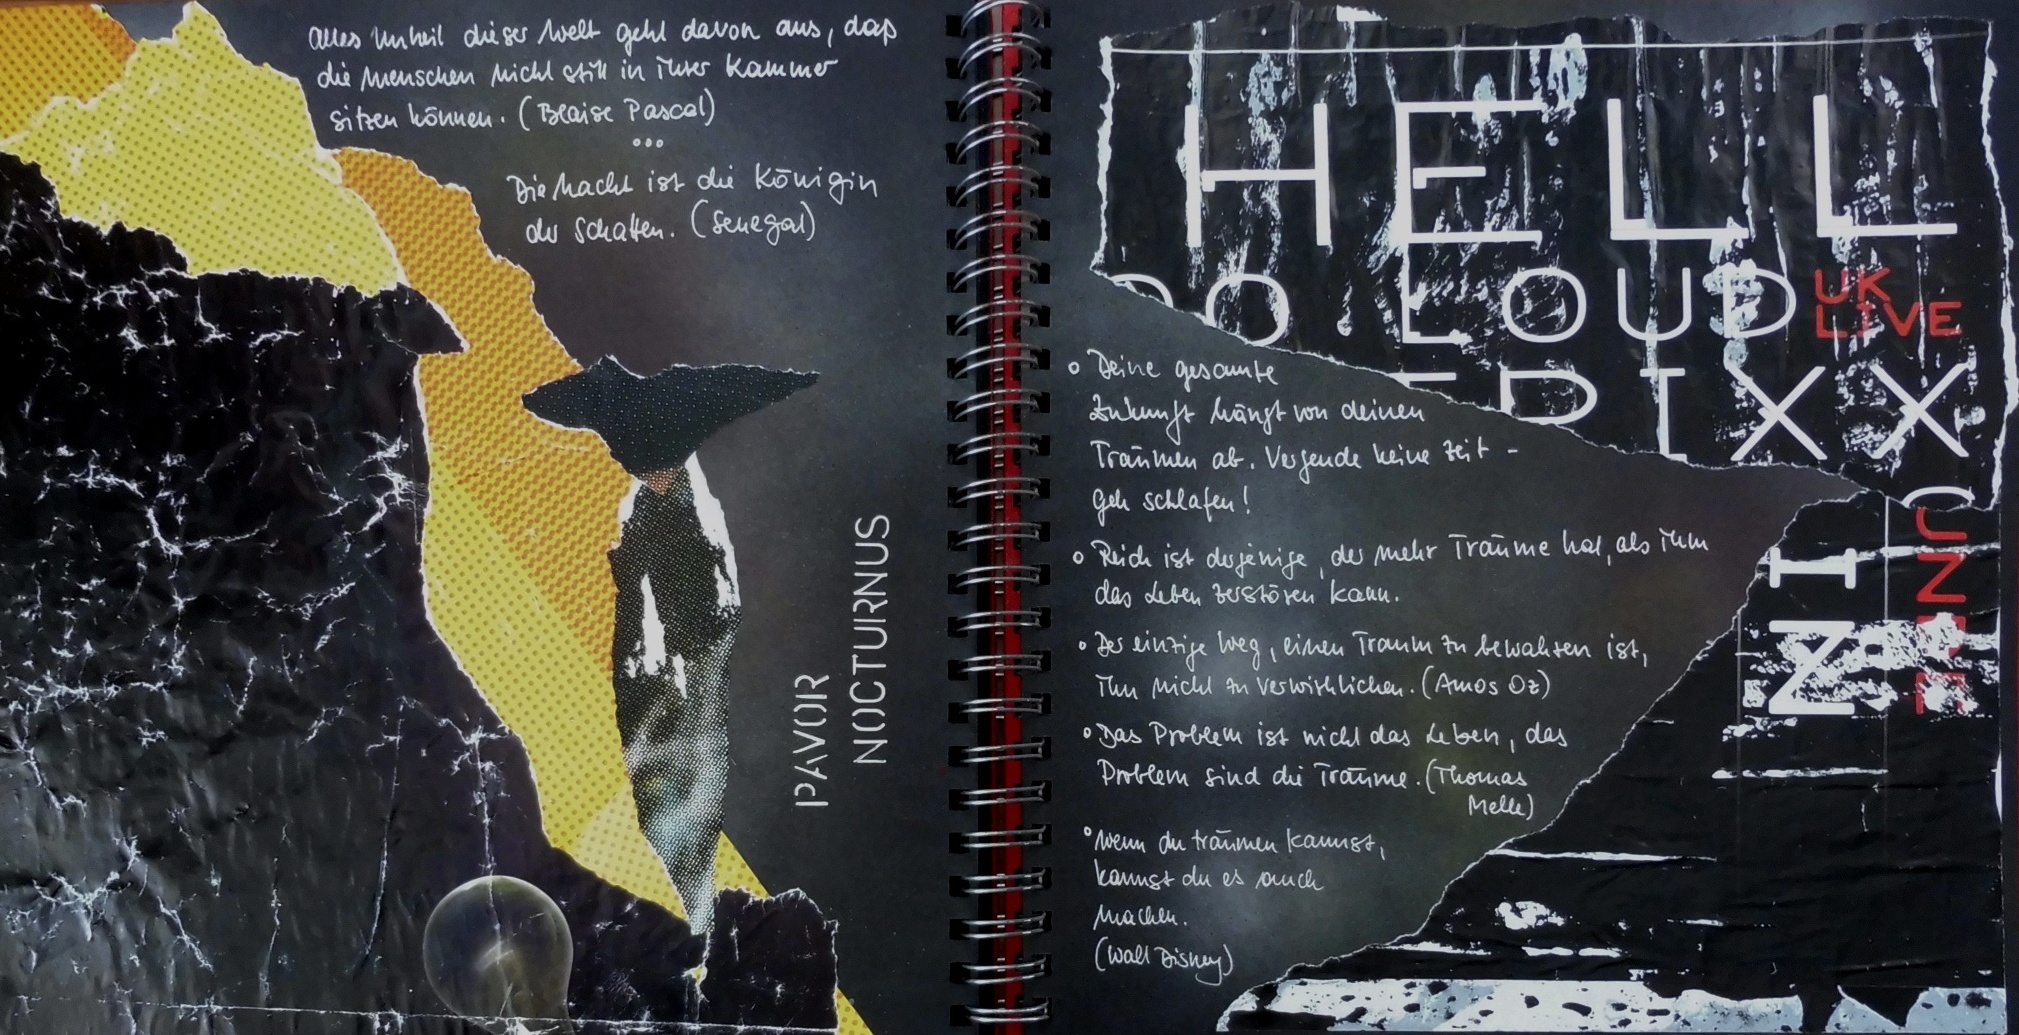 Alles Unheil dieser Welt geht davon aus, daß
die Menschen nicht still in ihrer Kammer
sitzen können. (Blaise Pascal)
...
Die Nacht ist die Königin
der Schatten. (Senegal)
PAVOR
NOCTURNUS
HELL
LOUD
UK
LIVE
DIXX
Deine gesamte
Zukunft hängt von deinen
Träumen ab. Vergeude keine Zeit -
Geh schlafen!
Reich ist derjenige, der mehr Träume hat, als ihm
das Leben zerstören kann.
Der einzige Weg, einen Traum zu bewahren ist,
ihn nicht zu verwirklichen. (Amos Oz)
Das Problem ist nicht das Leben, das
Problem sind die Träume. (Thomas
Melle)
Wenn du träumen kannst,
kannst du es auch
machen.
(Walt Disney)